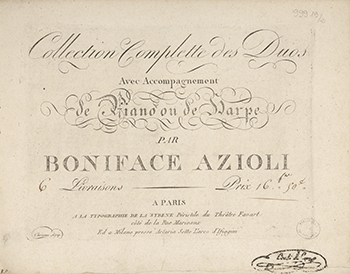 Collection Complette des Duos
Avec Accompagnement
de Piano ou de Harpe
PAR
BONIFACE AZIOLI
6e Livraisons Prix 16.fr 50c.
A PARIS
A LA TYPOGRAPHIE DE LA SYRENE Péristile du Théâtre Favart
côté de la Rue Marivaux
Ed a Milano presso Artaria Sotto